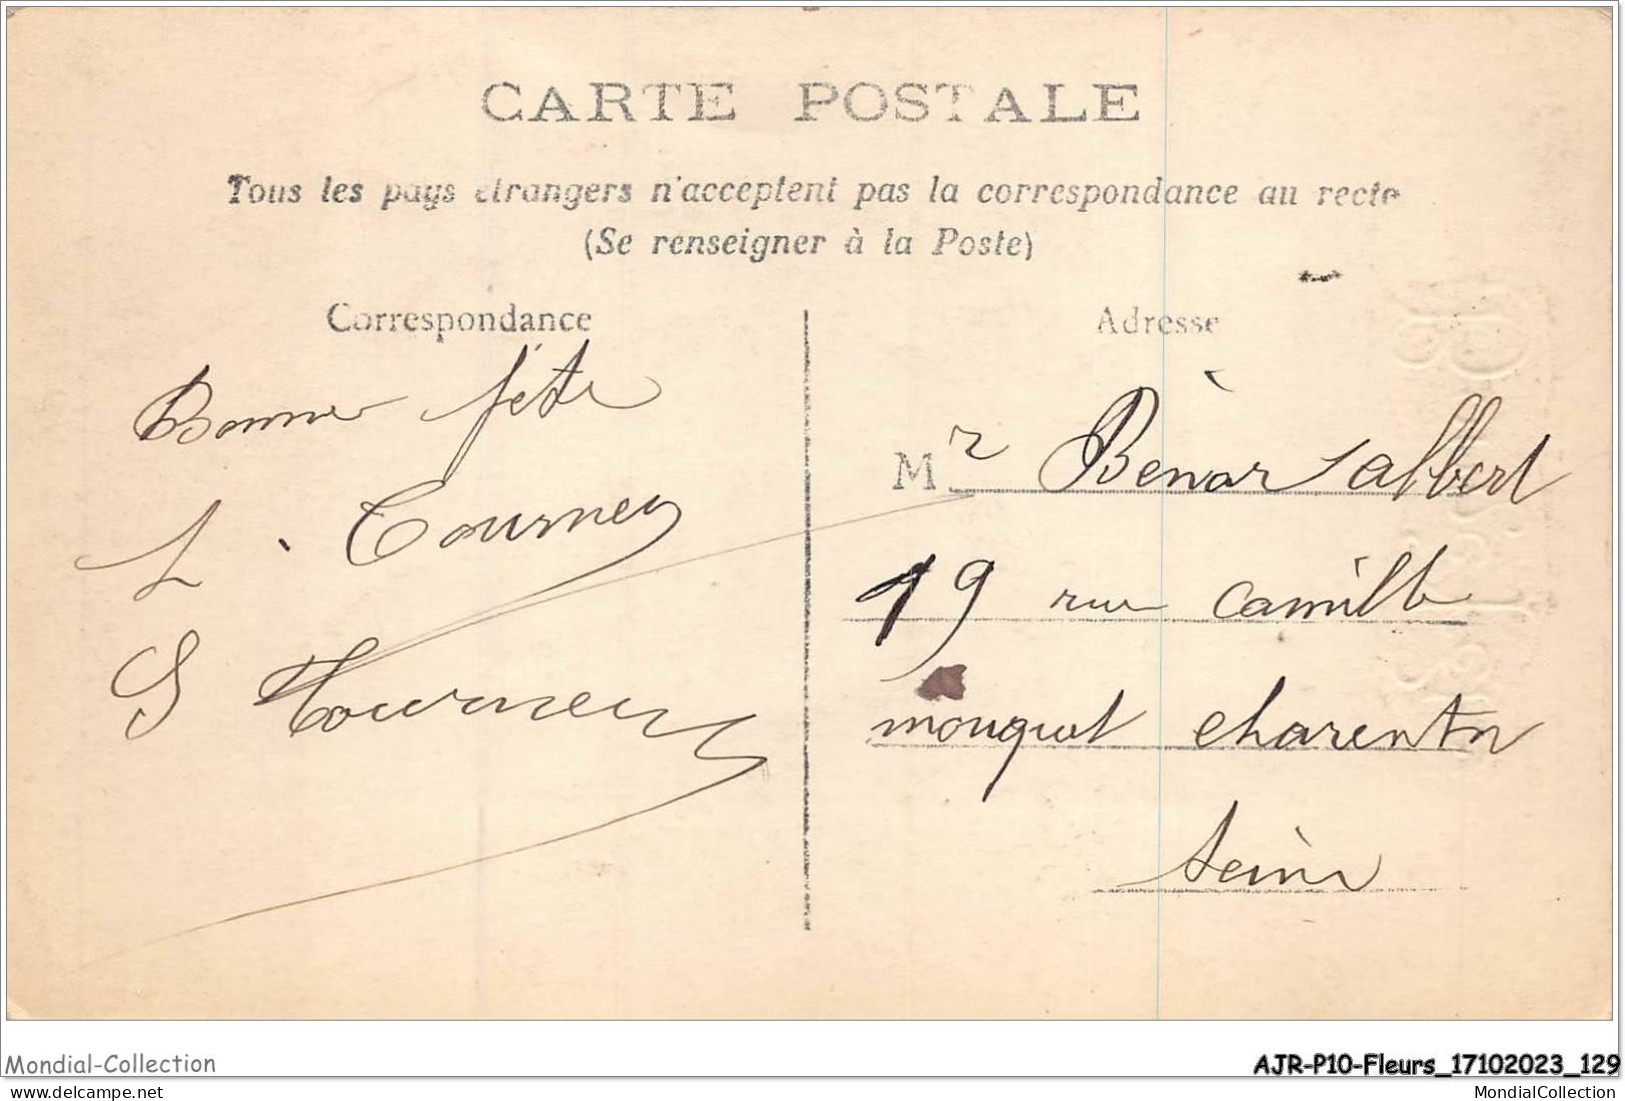 CARTE POSTALE
Tous les pays étrangers n'acceptent pas la correspondance au recto
(Se renseigner à la Poste)
Correspondance
Bonne fête
L. Tourneu
S Tourneu
Adresse
Mr Bènar albert
19 rue camille
mouquet charenton
seine
Mondial-Collection
AJR-P10-Fleurs_17102023_129
Mondial-Collection
MondialCollection